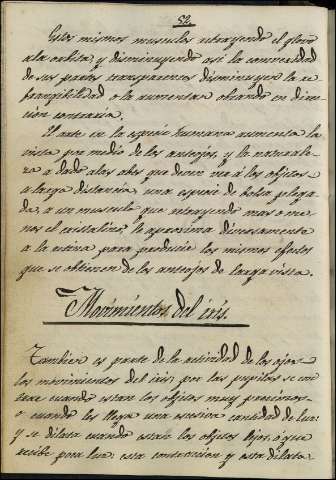 52
Estos mismos musculos retrayendo el globo
a la orbita, y disminuyendo asi la convecsidad
de sus partes transparentes disminuyen la re
frangibilidad o la aumentan obrando en direc
cion contraria.
El arte en la especie humana aumenta la
vista por medio de los anteojos, y la naturale
za a dado alas abes que deven ver á los objetos
a larga distancia, una especie de bolsa plega
da, o un musculo que retrayendo mas o me
nos el cristalino, lo aproxima diversamente
a la retina para producir los mismos efectos
que se obtienen de los anteojos de larga vista.
Movimientos del iris.
Tambien es parte de la actividad de los ojos
los movimientos del iris: por las pupilas se con
trae cuando estan los objetos muy proximos
o cuando les llega una escesiva cantidad de luz:
y se dilata cuando estan los objetos lejos, ó que
recibe poca luz: esta contraccion y esta dilata-